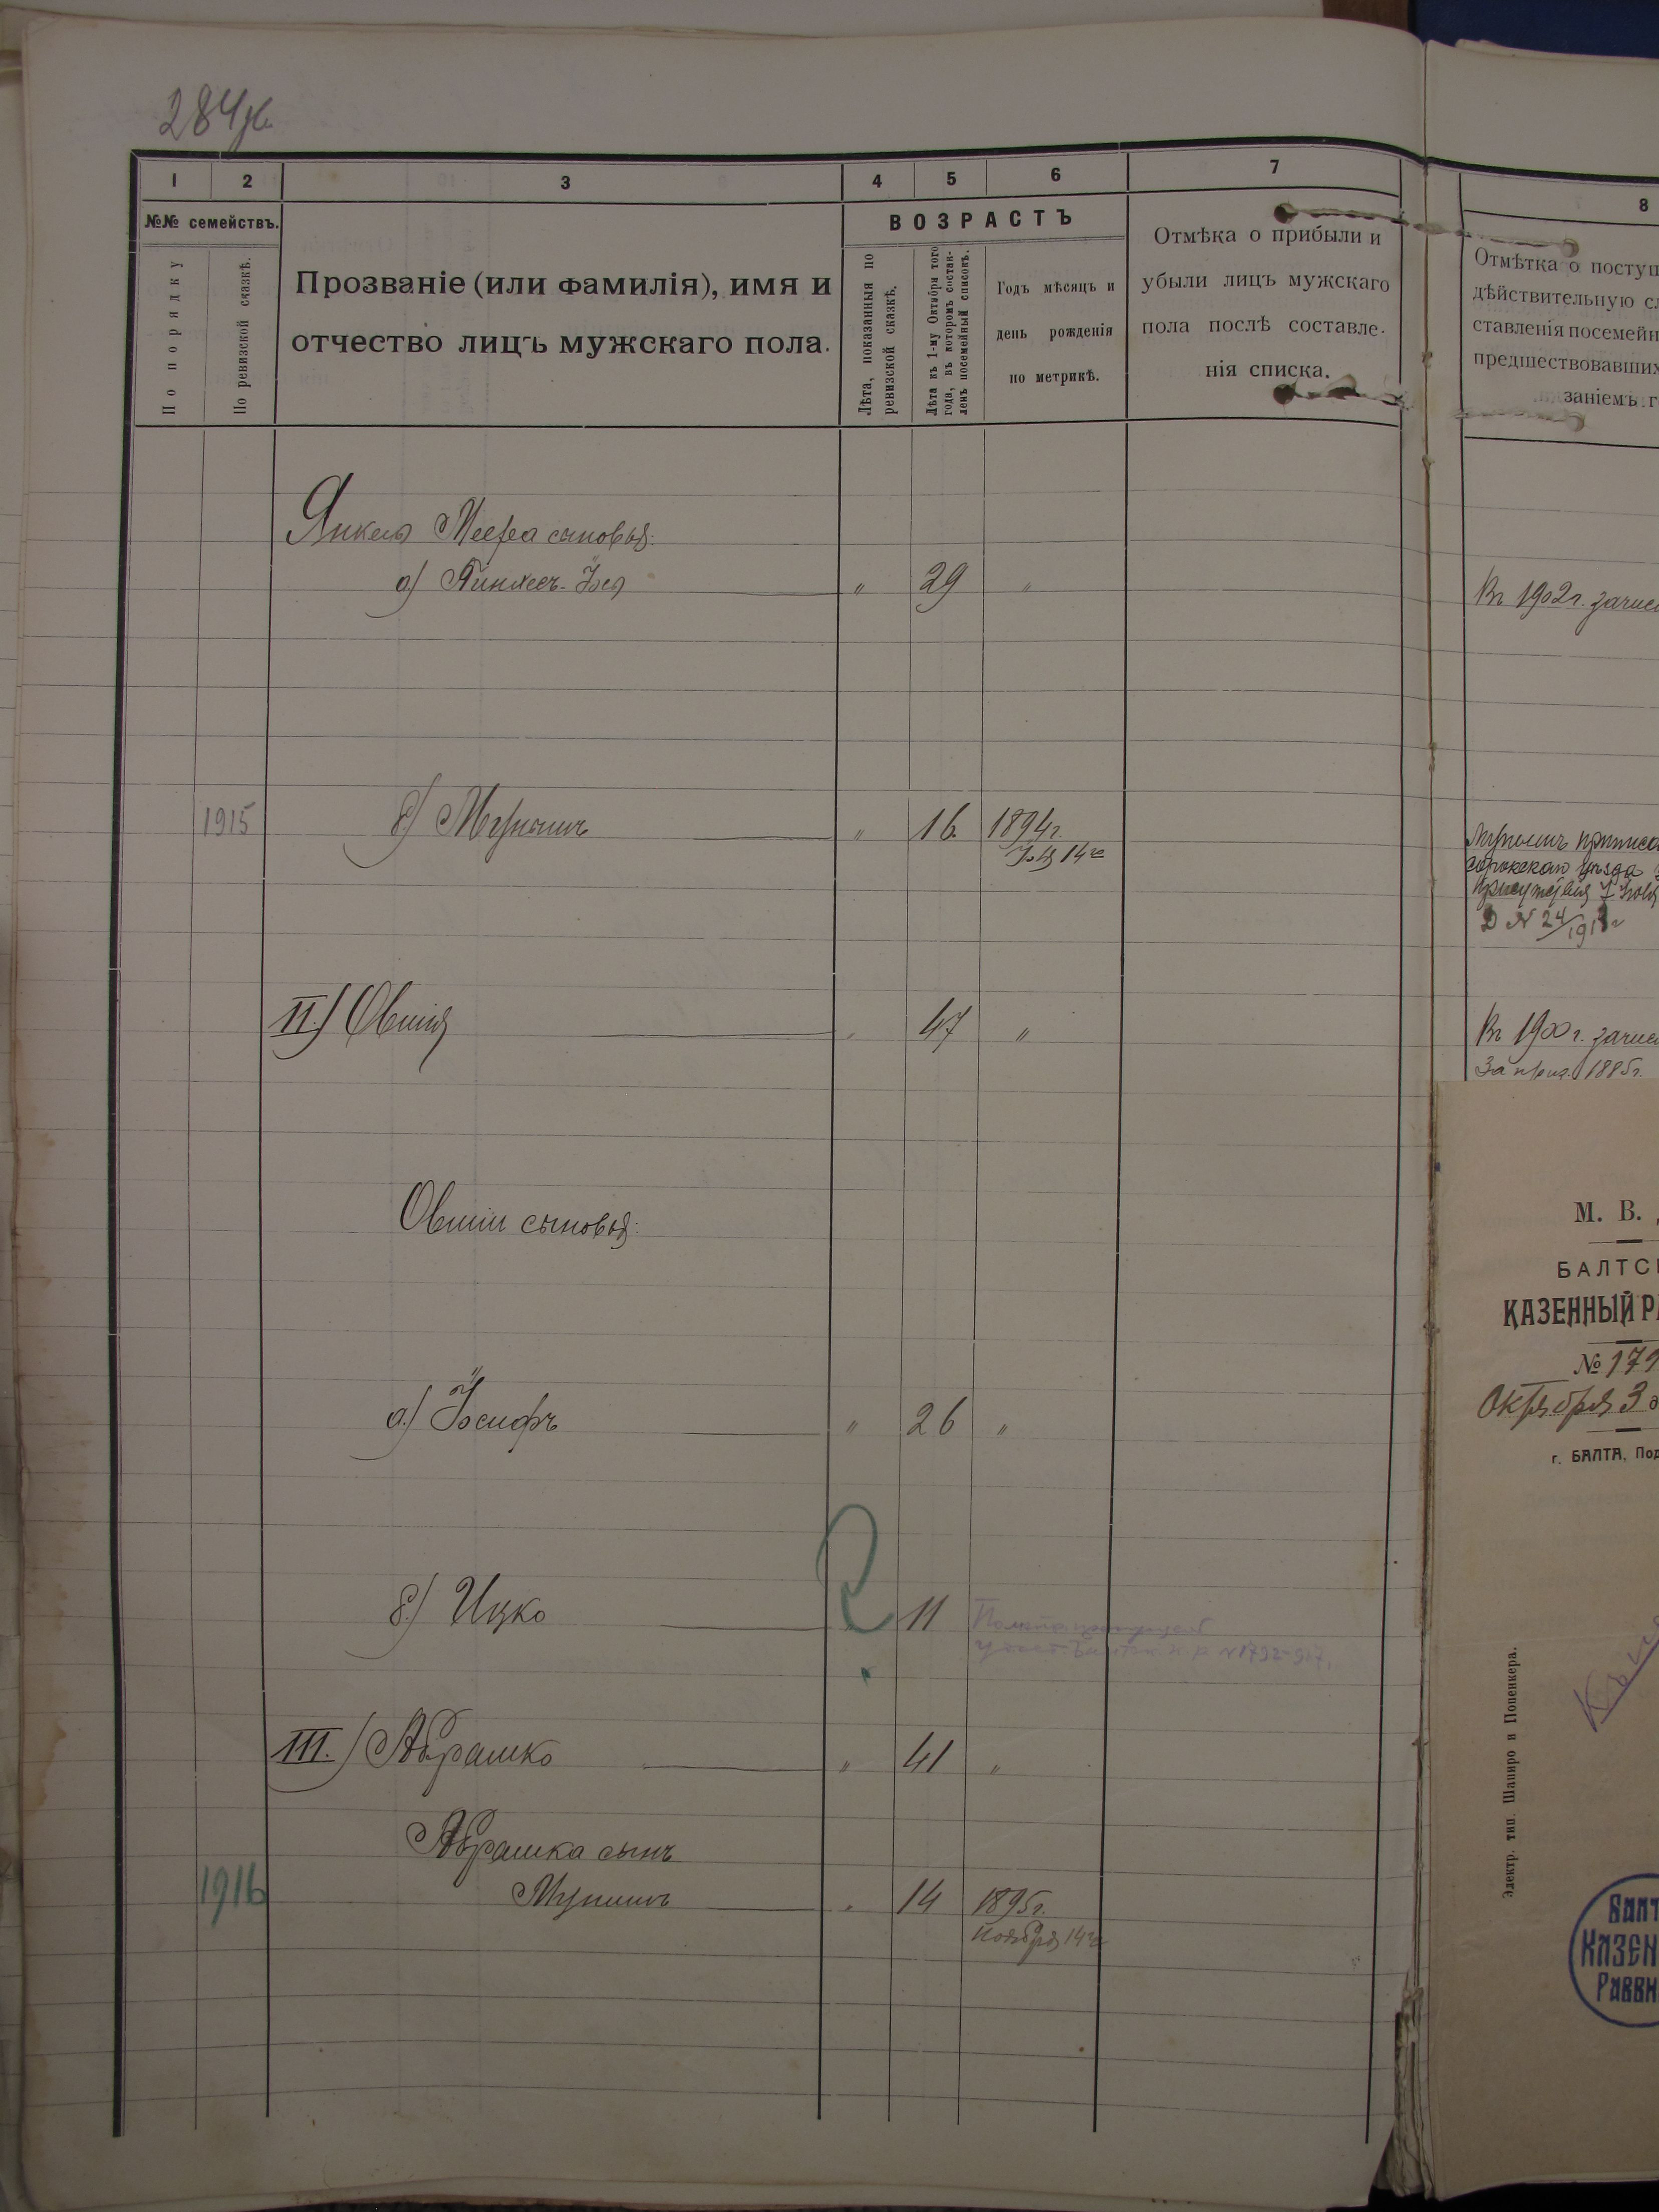 284
1
2
3
4
5
6
7
8
№№ семействъ.
По порядку
По ревизской сказкѣ.
Прозваніе (или фамилія), имя и
отчество лицъ мужскаго пола.
ВОЗРАСТЪ
Лѣта, показанныя по
ревизской сказкѣ.
Лѣта къ 1-му Октября того
года, въ которомъ состав-
ленъ посемейный списокъ.
Годъ мѣсяцъ и
день рожденія
по метрикѣ.
Отмѣка о прибыли и
убыли лицъ мужскаго
пола послѣ составле-
нія списка.
Отмѣтка о поступ
дѣйствительную сл
ставленія посемейн
предшествовавших
заніемъ г
Янкеля Меера сыновья:
а) Пинхесъ-Іося " 29 "
Въ 1902 г. зачис
1915 б) " 16 1894 г.
14го
сорокскаго уѣзда
D N 24/
II) Овшія 47 "
Въ 1900 г. зачис
За приз. 1885 г.
Овшіи сыновья:
а) Іосифъ " 26 "
б) Ицко 11
?
N 1792-917.
III.) Абрашко " 41 "
Абрашка сынъ
1916 14 1895 г.
Ноября 14го
М. В.
БАЛТС
КАЗЕННЫЙ РА
№ 179
Октября 3 д
г. БАЛТА, Под
Электр. тип. Шапиро и Попенкера.
БАЛТ
КАЗЕН
РАВВИ